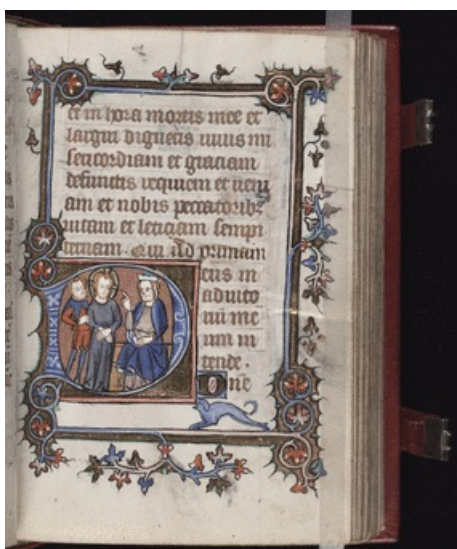 et in hora mortis mee et
largiri digneris uiuis mi
sericordiam et graciam
defunctis requiem et ueni
am et nobis peccatoribz
uitam et leticiam sempi
ternam. Qui Ad primam
Deus in
adiuto
riū me
um in
tende.
Dn̄e